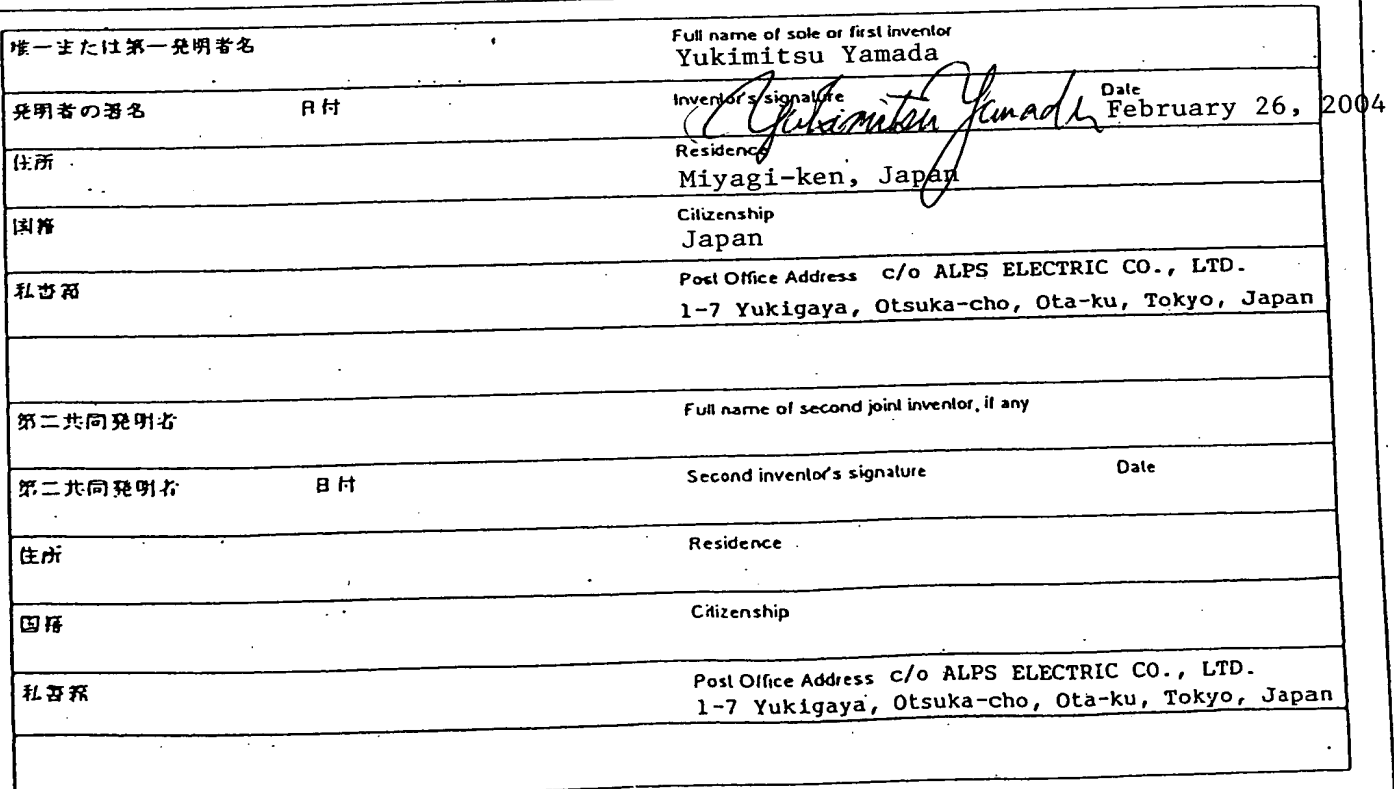 唯一または第一発明者名
Full name of sole or first inventor
Yukimitsu Yamada
発明者の署名 日付
Inventor's signature Date
Yukimitsu Yamada February 26, 2004
住所
Residence
Miyagi-ken, Japan
国籍
Citizenship
Japan
私書箱
Post Office Address c/o ALPS ELECTRIC CO., LTD.
1-7 Yukigaya, Otsuka-cho, Ota-ku, Tokyo, Japan
第二共同発明者
Full name of second joint inventor, if any
第二共同発明者 日付
Second inventor's signature Date
住所
Residence
国籍
Citizenship
私書箱
Post Office Address c/o ALPS ELECTRIC CO., LTD.
1-7 Yukigaya, Otsuka-cho, Ota-ku, Tokyo, Japan